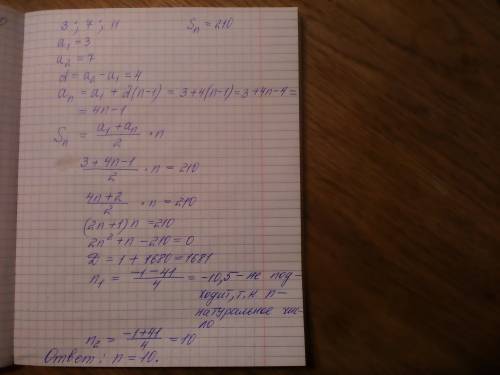 3 ; 7 ; 11 Sn = 210
a₁ = 3
a₂ = 7
d = a₂ - a₁ = 4
aₙ = a₁ + d(n-1) = 3+4(n-1)=3+4n-4=
= 4n-1
Sₙ = (a₁ + aₙ)/2 · n
(3+4n-1)/2 · n = 210
(4n+2)/2 · n = 210
(2n+1)n = 210
2n² + n - 210 = 0
D = 1 + 1680 = 1681
n₁ = (-1-41)/4 = -10,5 - не под-
ходит, т.к n -
натуральное чис-
ло
n₂ = (-1+41)/4 = 10
Ответ: n = 10.